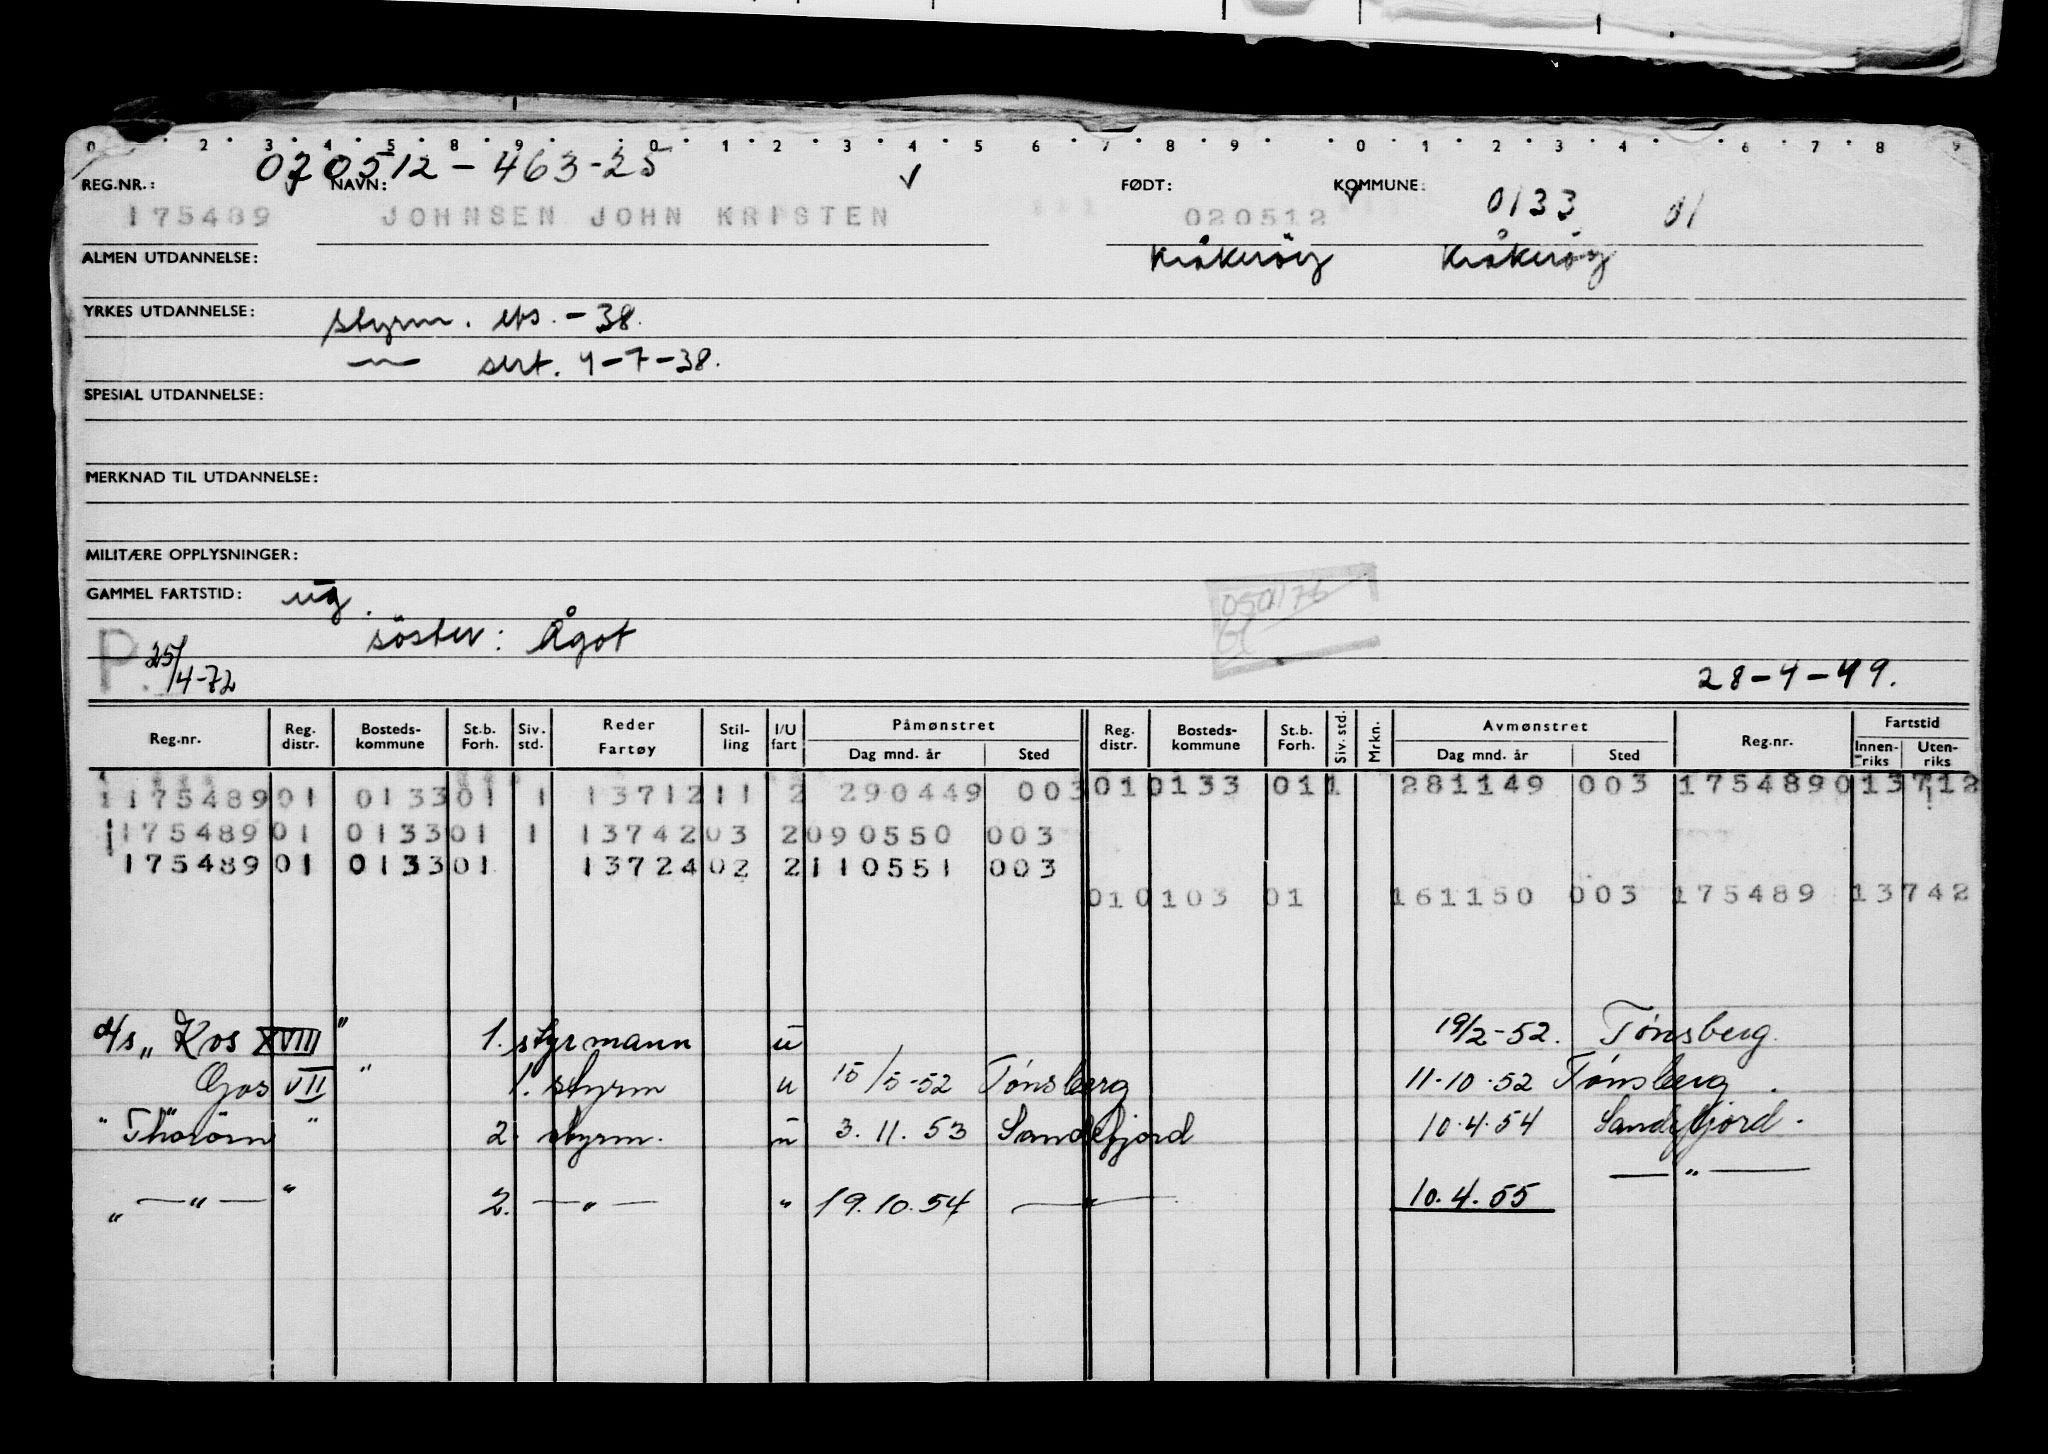 0 2 3 4 5 8 9 0 1 2 3 4 5 6 7 8 9 0 1 2 3 4 6 7 8 9
020512 - 463-25
REG.NR.: NAVN: FØDT: KOMMUNE:
175489 JOHNSEN JOHN KRISTEN 020512 0133 01
ALMEN UTDANNELSE: Kråkerøy Kråkerøy
YRKES UTDANNELSE: styrm. eks. - 38.
— sert. 4-7-38.
SPESIAL UTDANNELSE:
MERKNAD TIL UTDANNELSE:
MILITÆRE OPPLYSNINGER:
GAMMEL FARTSTID: ug.
søster: Ågot
P. 25/4-72 28-4-49.
Reg.nr. Reg. distr. Bosteds-kommune St.b. Forh. Siv. std. Reder Fartøy Stil-ling I/U fart Påmønstret Dag mnd. år Sted Reg. distr. Bosteds-kommune St.b. Forh. Siv. std. Mrkn. Avmønstret Dag mnd. år Sted Reg.nr. Fartstid Innen-riks Uten-riks
1175489 01 0133 01 1 13712 11 2 290449 003 01 0133 01 1 281149 003 175489 013712
175489 01 0133 01 1 13742 03 2 090550 003
175489 01 0133 01 13724 02 2 110551 003
01 0103 01 161150 003 175489 13742
d/s „ Kos XVIII " 1. styrmann u 19/2-52. Tønsberg.
Gos VII " 1. styrm u 15/5-52 Tønsberg 11-10-52 Tønsberg.
" Thorörn " 2. styrm. u 3.11.53 Sandefjord 10.4.54 Sandefjord.
„ — " — " 2. — " — " 19.10.54 — " — 10.4.55 — " —